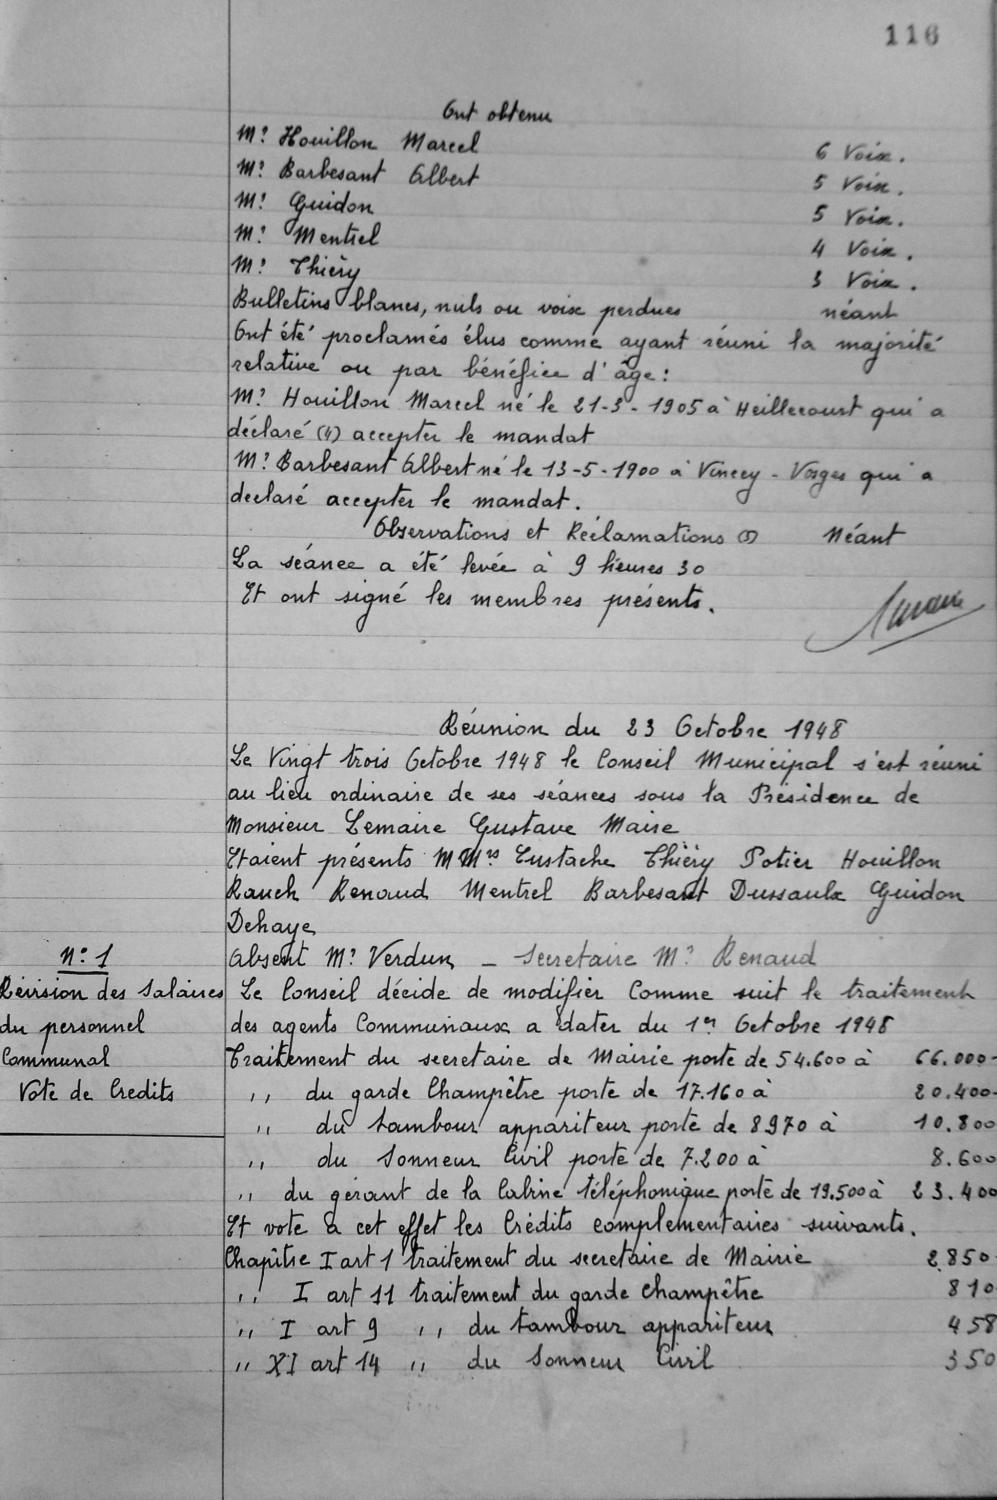 116
Ont obtenu
Mr Houillon Marcel 6 Voix.
Mr Barbesant Albert 5 Voix.
Mr Guidon 5 Voix.
Mr Mentrel 4 Voix.
Mr Thiéry 3 Voix.
Bulletins blancs, nuls ou voix perdues néant
Ont été proclamés élus comme ayant réuni la majorité
relative ou par bénéfice d'âge:
Mr Houillon Marcel né le 21-3-1905 à Heillecourt qui a
déclaré (4) accepter le mandat
Mr Barbesant Albert né le 13-5-1900 à Vincey - Vosges qui a
declaré accepter le mandat.
Observations et Réclamations (5) Néant
La séance a été levée à 9 heures 30
Et ont signé les membres présents.
Réunion du 23 Octobre 1948
Le Vingt trois Octobre 1948 le Conseil Municipal s'est réuni
au lieu ordinaire de ses séances sous la Présidence de
Monsieur Lemaire Gustave Maire
Etaient présents MMrs Eustache Thiéry Potier Houillon
Rauch Renaud Mentrel Barbesant Dussaulx Guidon
Dehaye
Absent Mr Verdun - Secretaire Mr Renaud
N° 1
Révision des Salaires
du personnel
Communal
Vote de Credits
Le Conseil décide de modifier Comme suit le traitement
des agents Communaux a dater du 1er Octobre 1948
Traitement du secretaire de Mairie porté de 54.600 à 66.000-
,, du garde Champêtre porte de 17.160 à 20.400-
,, du tambour appariteur porté de 8970 à 10.800
,, du Sonneur Civil porte de 7.200 à 8.600
,, du gérant de la Cabine téléphonique porté de 19.500 à 23.400
Et vote a cet effet les Crédits complementaires suivants.
Chapître I art 1 traitement du secretaire de Mairie 2.850-
,, I art 11 traitement du garde champêtre 810
,, I art 9 ,, du tambour appariteur 458
,, XI art 14 ,, du Sonneur Civil 350